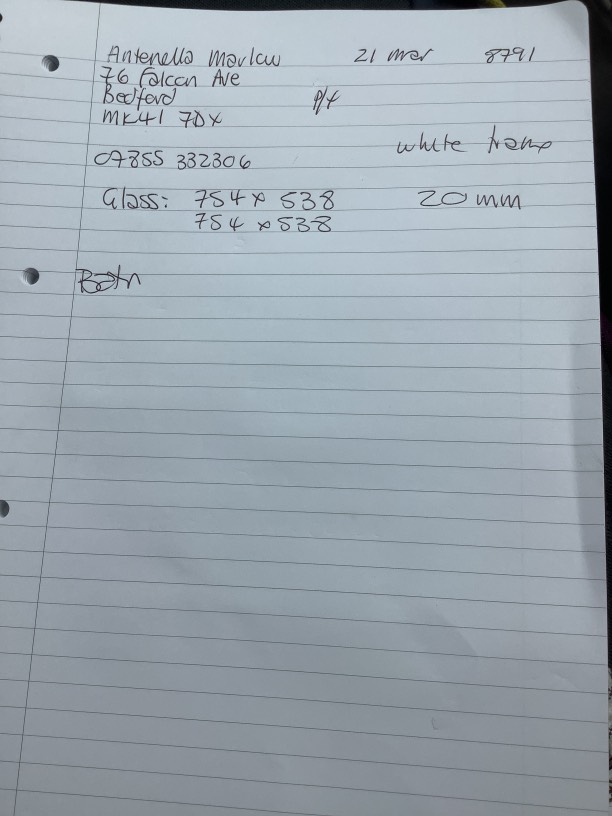 Antenella Marlow 21 mar 8791
76 Falcon Ave
Bedford P/f
MK41 7DX
white frame
07855 332306
Glass: 754 x 538 20mm
754 x 538
Both